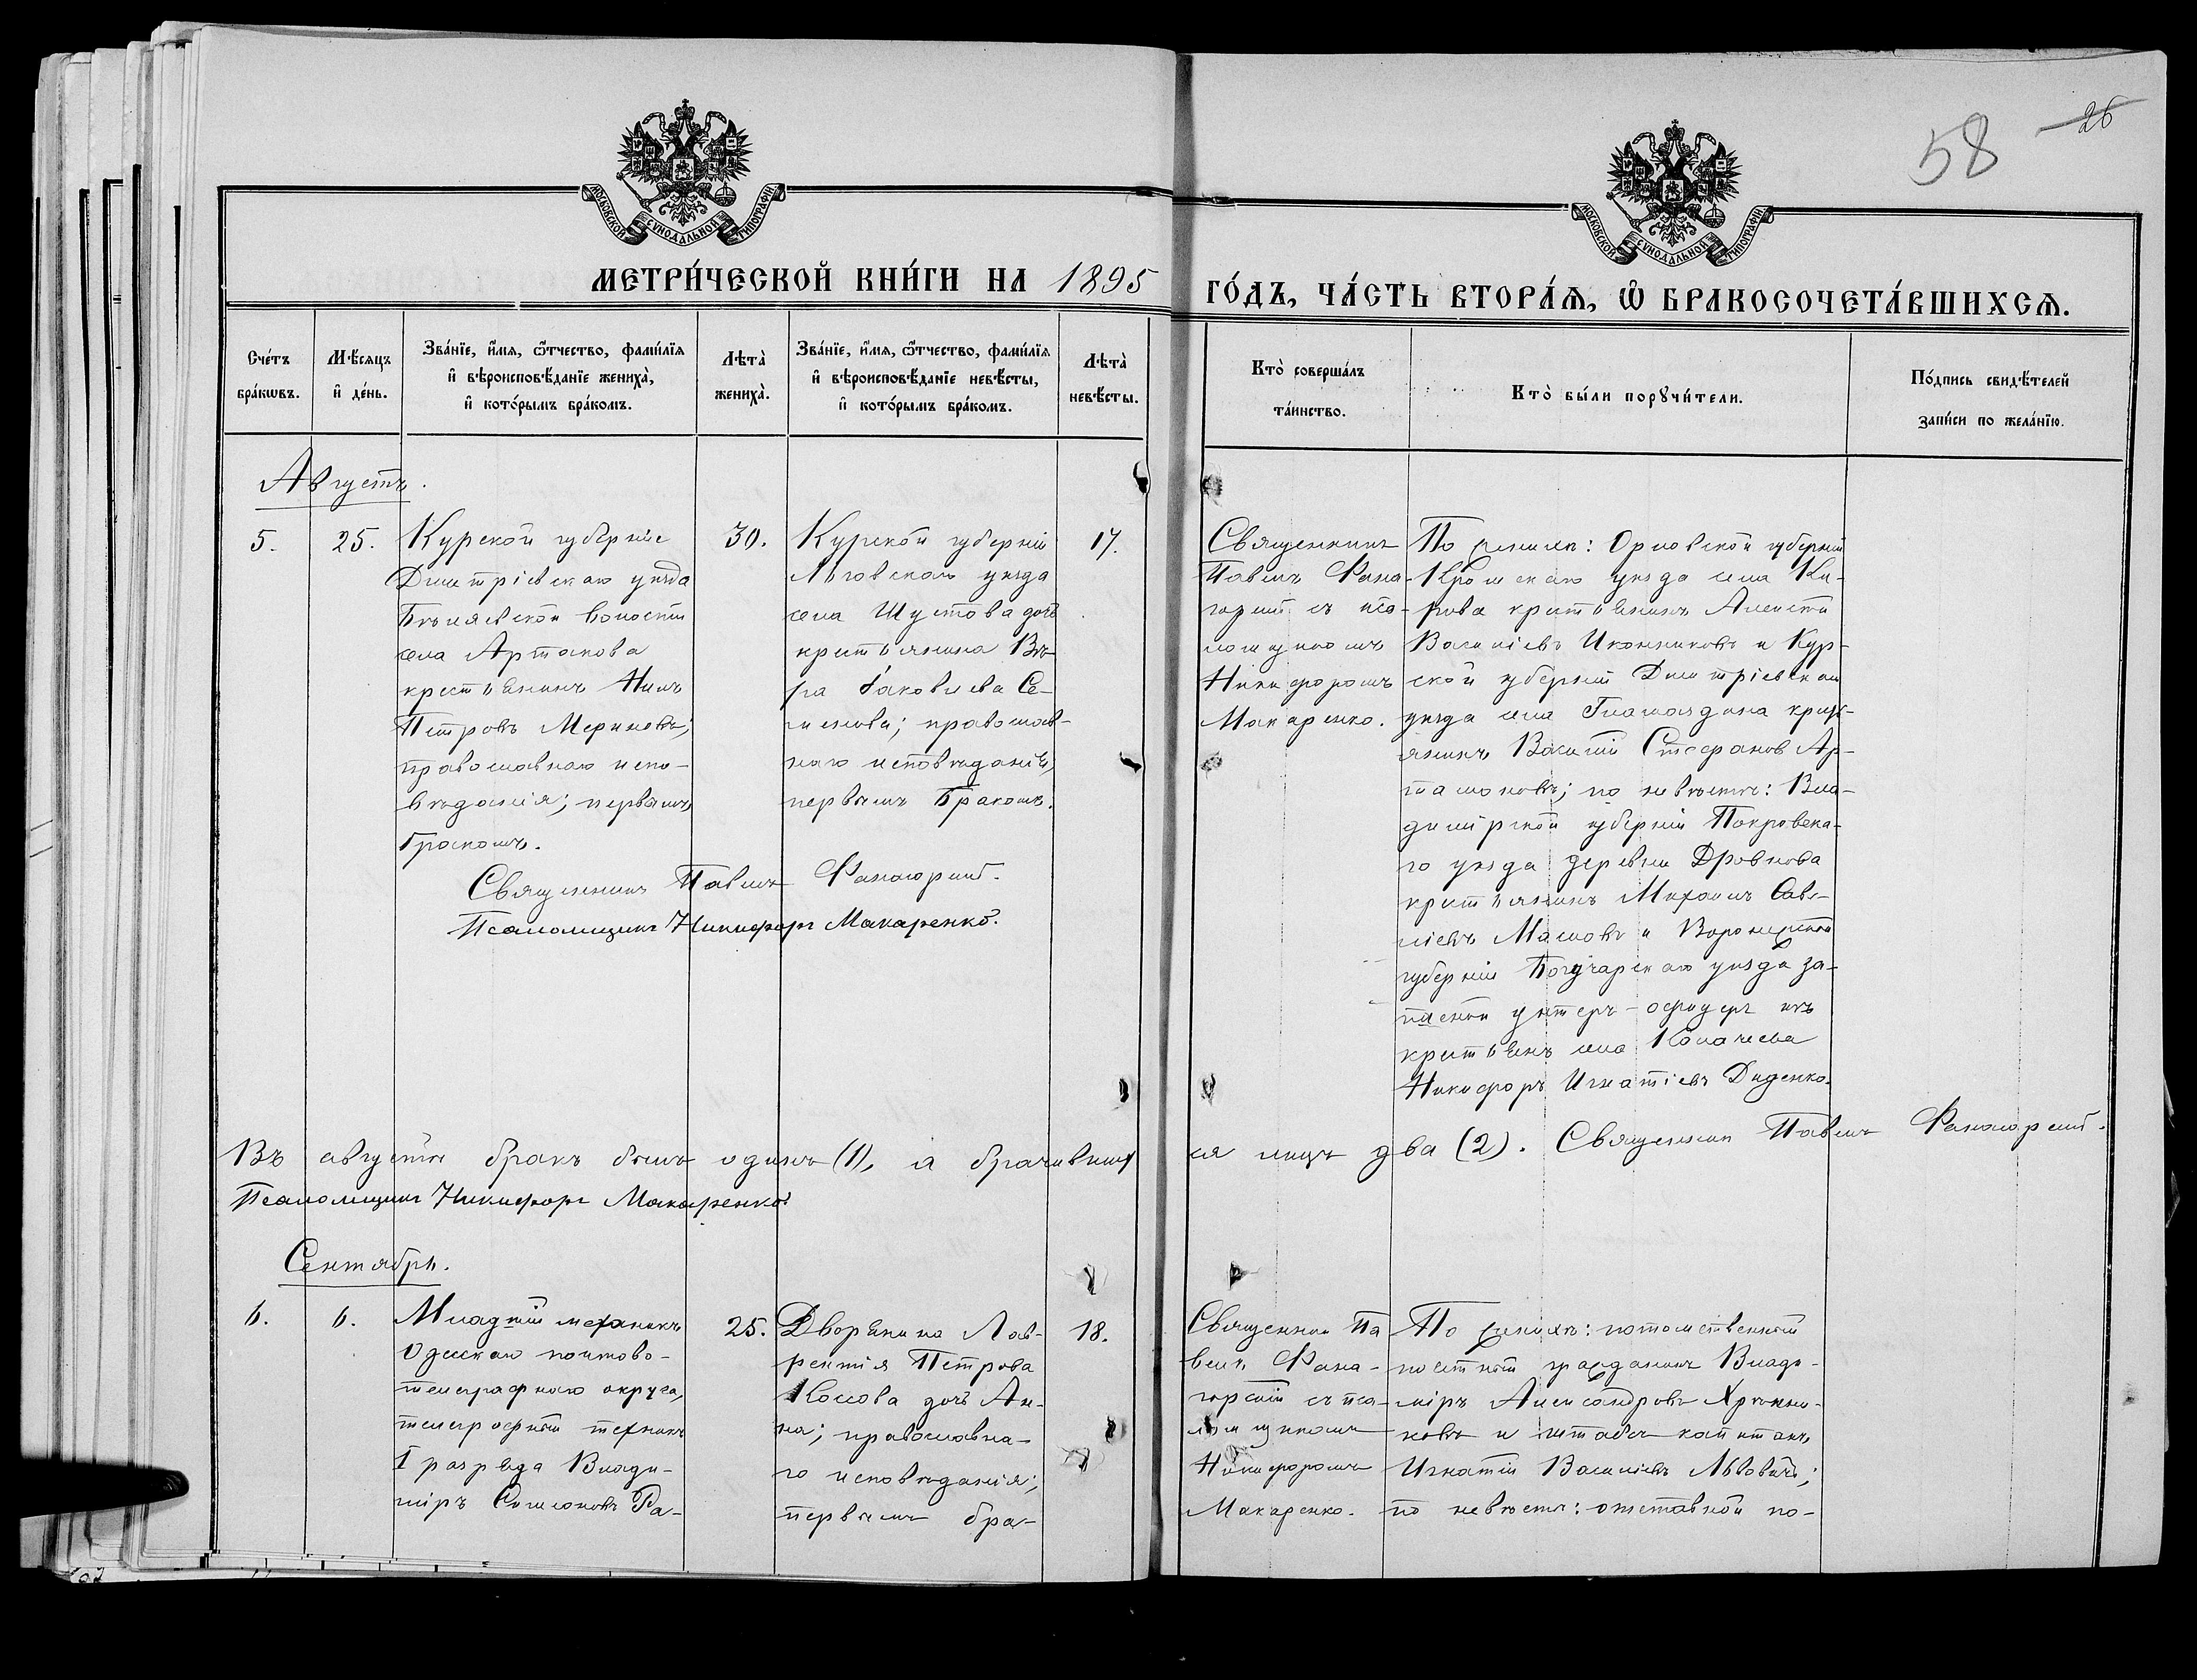 58 26
МОСКОВСКОЙ СѴНОДАЛЬНОЙ ТИПОГРАФІИ
МОСКОВСКОЙ СѴНОДАЛЬНОЙ ТИПОГРАФІИ
МЕТРИ́ЧЕСКОЙ КНИ́ГИ НА 1895 ГО́ДЪ, ЧА́СТЬ ВТОРА́Ѧ, Ѽ БРАКОСОЧЕТА́ВШИХСѦ.
Сче́тъ
бра́кωвъ.
Мѣ́сяцъ
и҆ де́нь.
Зва́нїе, и҆́мя, ѻ҆́тчество, фами́лїя
и҆ вѣроисповѣ́данїе жениха̀,
и҆ кото́рымъ бра́комъ.
Лѣта̀
жениха̀.
Зва́нїе, и҆́мя, ѻ҆́тчество, фами́лїя
и҆ вѣроисповѣ́данїе невѣ́сты,
и҆ кото́рымъ бра́комъ.
Лѣта̀
невѣ́сты.
Кто̀ соверша́лъ
та́инство.
Кто̀ бы́ли порꙋчи́тели.
По́дпись свидѣ́телей
за́писи по жела́нїю.
Августъ.
5.
25.
Курской губерніи
Дмитріевскаго уѣзда
волости
села Артакова
крестьянинъ
Петровъ
православнаго испо-
вѣданія; первымъ
бракомъ.
30.
Курской губерніи
Льговскаго уѣзда
села Шустова дочь
крестьянина Вѣ-
ра Іаковлева Се-
менова; православ-
наго исповѣданія,
первымъ бракомъ.
17.
Священникъ
Павелъ Фана-
горскій съ пса-
ломщикомъ
Никифоромъ
Макаренко.
По женихѣ: Орловской губерніи
Кромскаго уѣзда села Ки-
рова крестьянинъ Алексѣй
Васильевъ Иконниковъ и Кур-
ской губерніи Дмитріевскаго
уѣзда села крест-
янинъ Василій Стефановъ Ар-
тамоновъ; по невѣстѣ: Вла-
димірской губерніи Покровска-
го уѣзда деревни Дровнова
крестьянинъ Михаилъ Саве-
ліевъ и Воронежской
губерніи Богучарскаго уѣзда за-
пасной унтеръ-офицеръ изъ
крестьянъ села Калачева
Никифоръ Игнатіевъ Диденко.
Священникъ Павелъ Фанагорскій.
Псаломщикъ Никифоръ Макаренко.
Въ августѣ бракъ былъ одинъ (1), а брачившихся лицъ два (2). Священникъ Павелъ Фанагорскій.
Псаломщикъ Никифоръ Макаренко.
Сентябрь.
6.
6.
Младшій механикъ
Одесскаго почтово-
телеграфнаго округа,
телеграфный техникъ
I разряда Влади-
міръ Симеоновъ Ра-
25.
Дворянина Лав-
рентія Петрова
Косова дочь Ан-
на; православна-
го исповѣданія;
первымъ бра-
18.
Священникъ Па
велъ Фана-
горскій съ пса-
ломщикомъ
Никифоромъ
Макаренко.
По женихѣ: потомственный
почетный гражданинъ Влади-
міръ Александровъ Хрѣнни-
ковъ и штабсъ-капитанъ
Игнатій Васильевъ Львовичъ;
по невѣстѣ: отставной по-